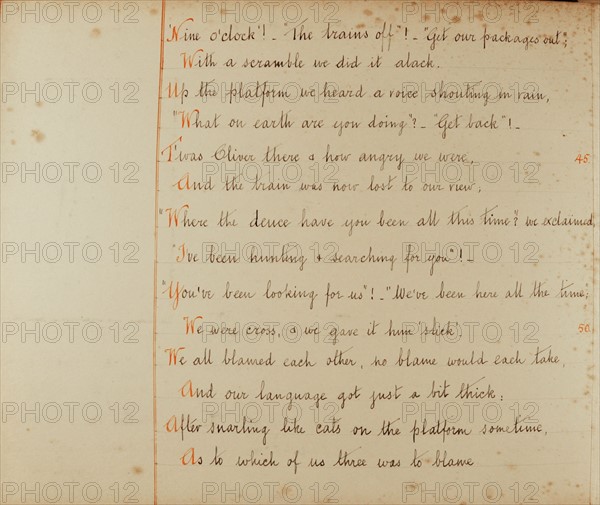 "Nine o'clock"! - "The trains off"! - "Get our packages out";
With a scramble we did it alack.
Up the platform we heard a voice shouting in vain,
"What on earth are you doing"? - "Get back"! -
T'was Oliver there & how angry we were, 45.
And the train was now lost to our view;
"Where the deuce have you been all this time"? we exclaimed,
"I've been hunting & searching for you"! -
"You've been looking for us"! - "We've been here all the time;
We were cross, & we gave it him 'slick'; 50.
We all blamed each other, no blame would each take,
And our language got just a bit thick;
After snarling like cats on the platform sometime,
As to which of us three was to blame